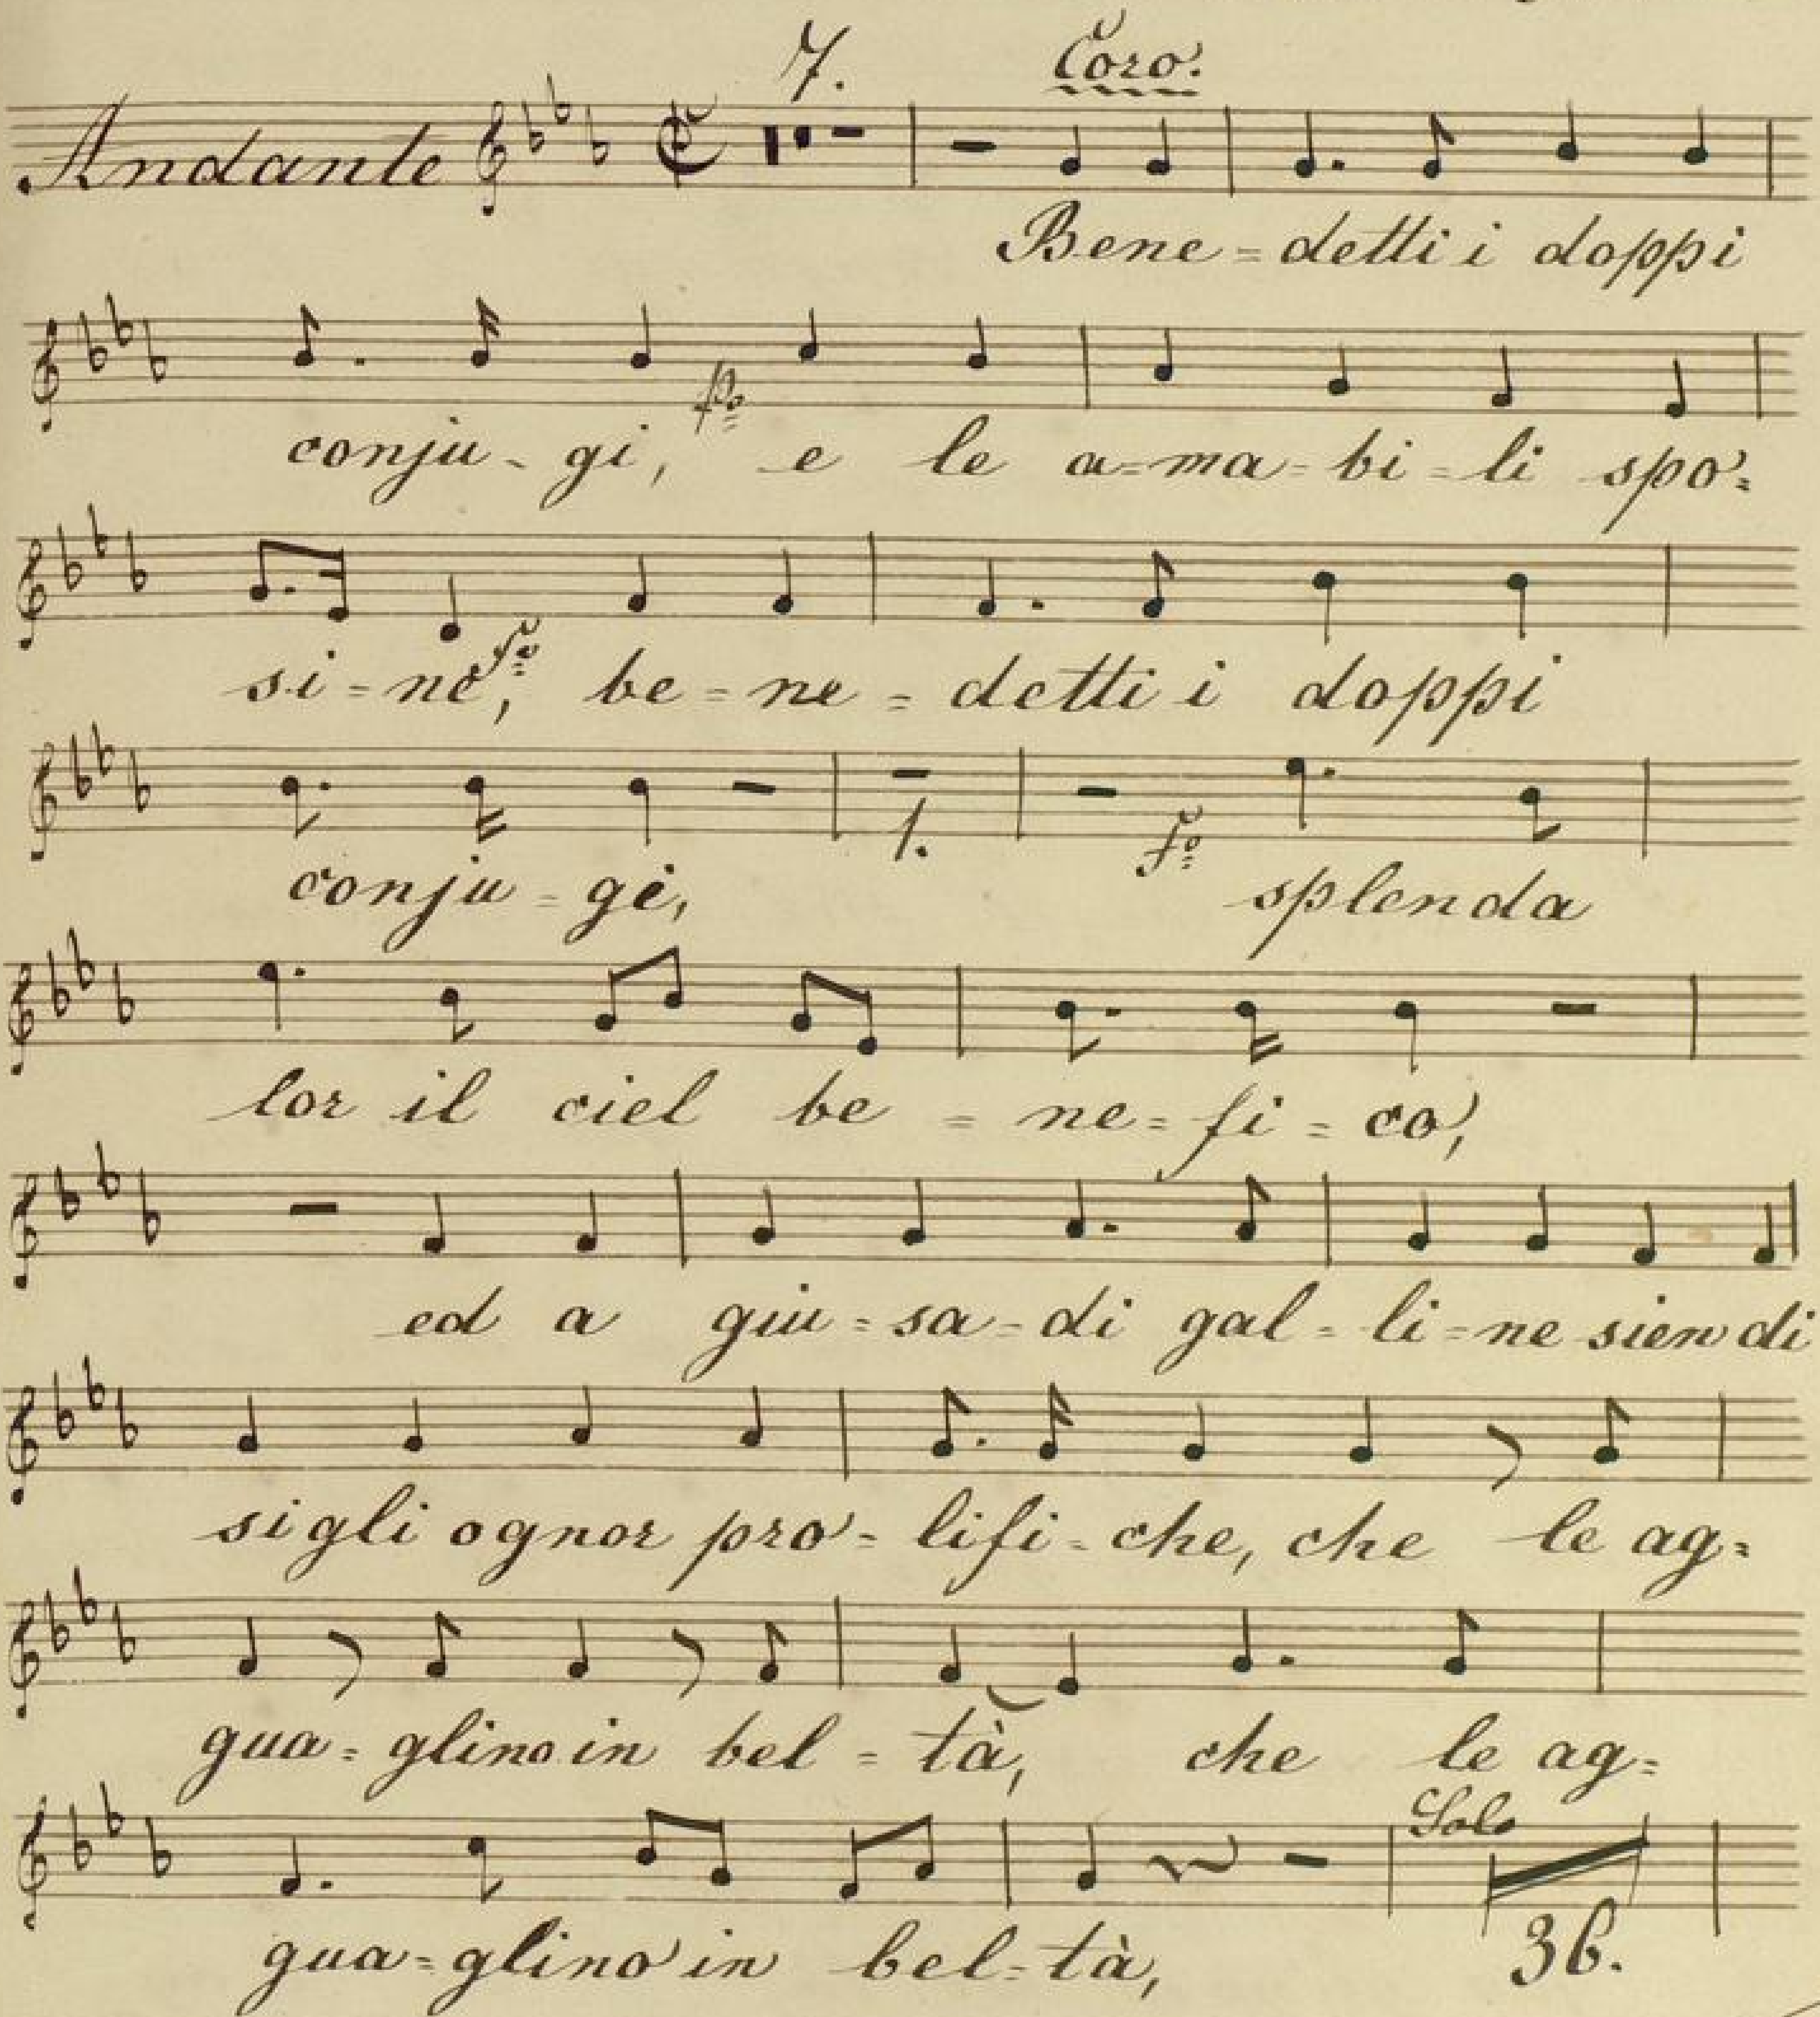 7. Coro.
Andante
Bene=detti i doppi
po
conju-gi, e le a=ma=bi=li spo=
fo
si=ne, be=ne=detti i doppi
1. fo
conju=gi, splenda
lor il ciel be=ne=fi=co,
ed a giu=sa=di gal=li=ne sien di
sigli ognor pro=lifi=che, che le ag=
gua=glino in bel=tà, che le ag=
Solo
36.
gua=glino in bel=tà,